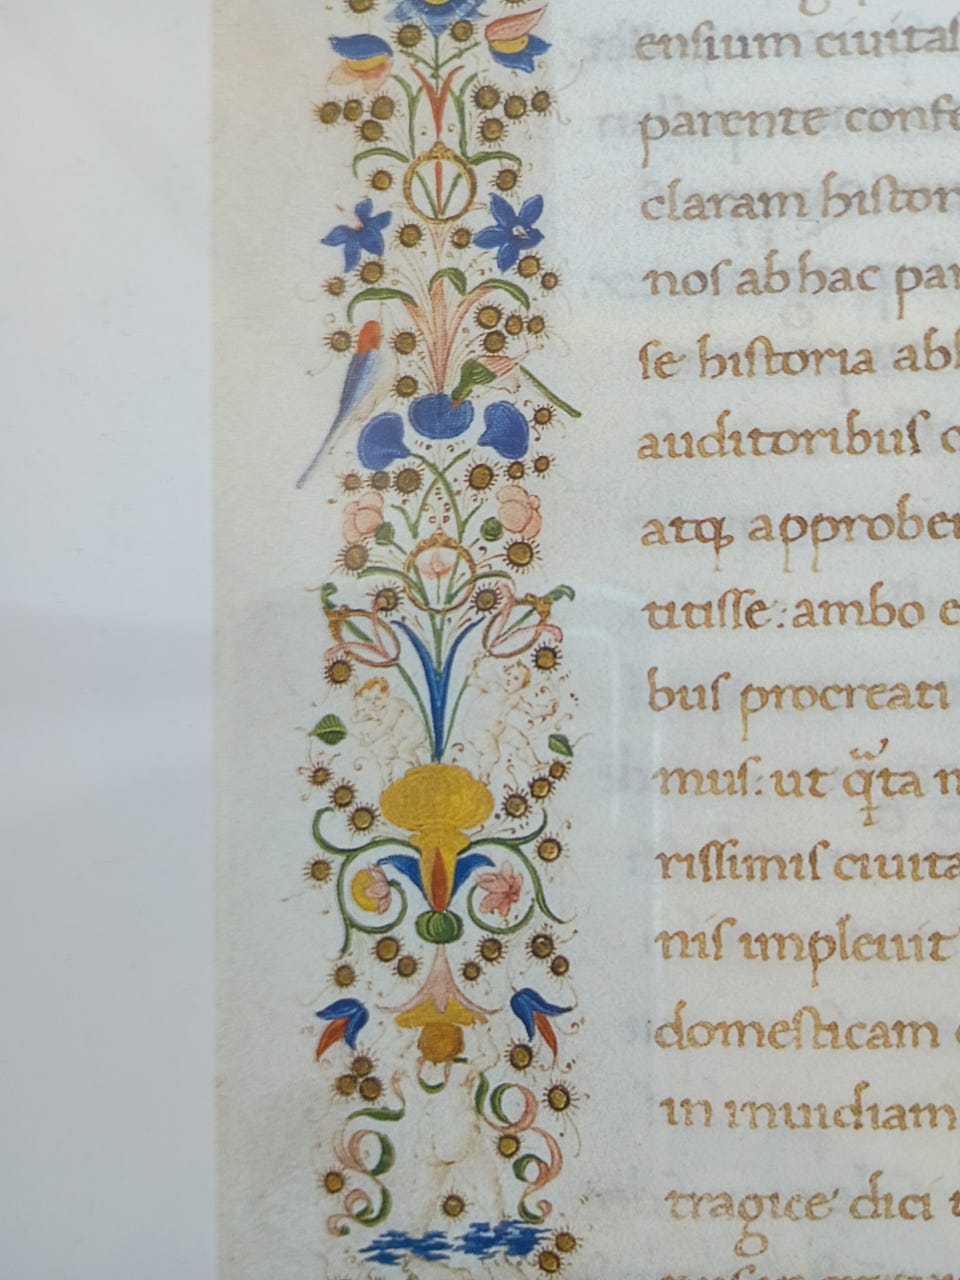 ensium ciuitas
parente confe
claram histor
nos ab hac par
se historia abh
auditoribus
atq; approben
titisse: ambo e
bus procreati
mus: ut q̃ta
rissimis ciuita
nis impleuit
domesticam
in inuidiam
tragice dici